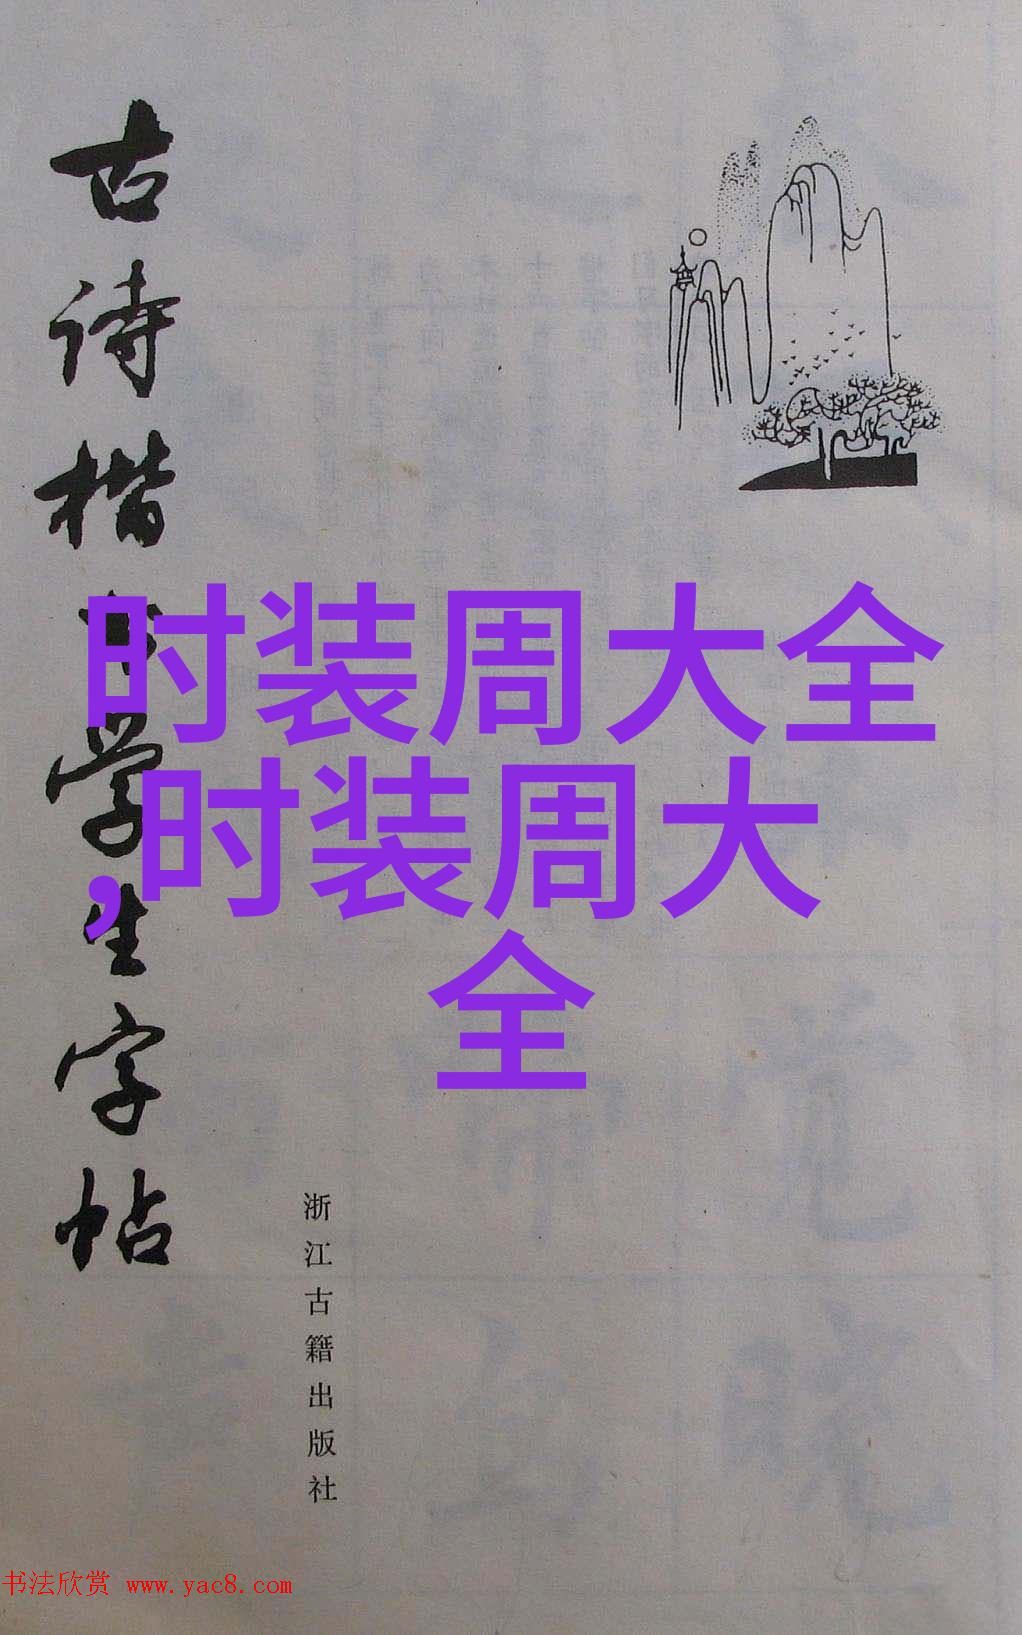 古诗楷书学生字帖
时装周大全
,时装周大
全
浙江古籍出版社
书法欣赏 www.yac8.com